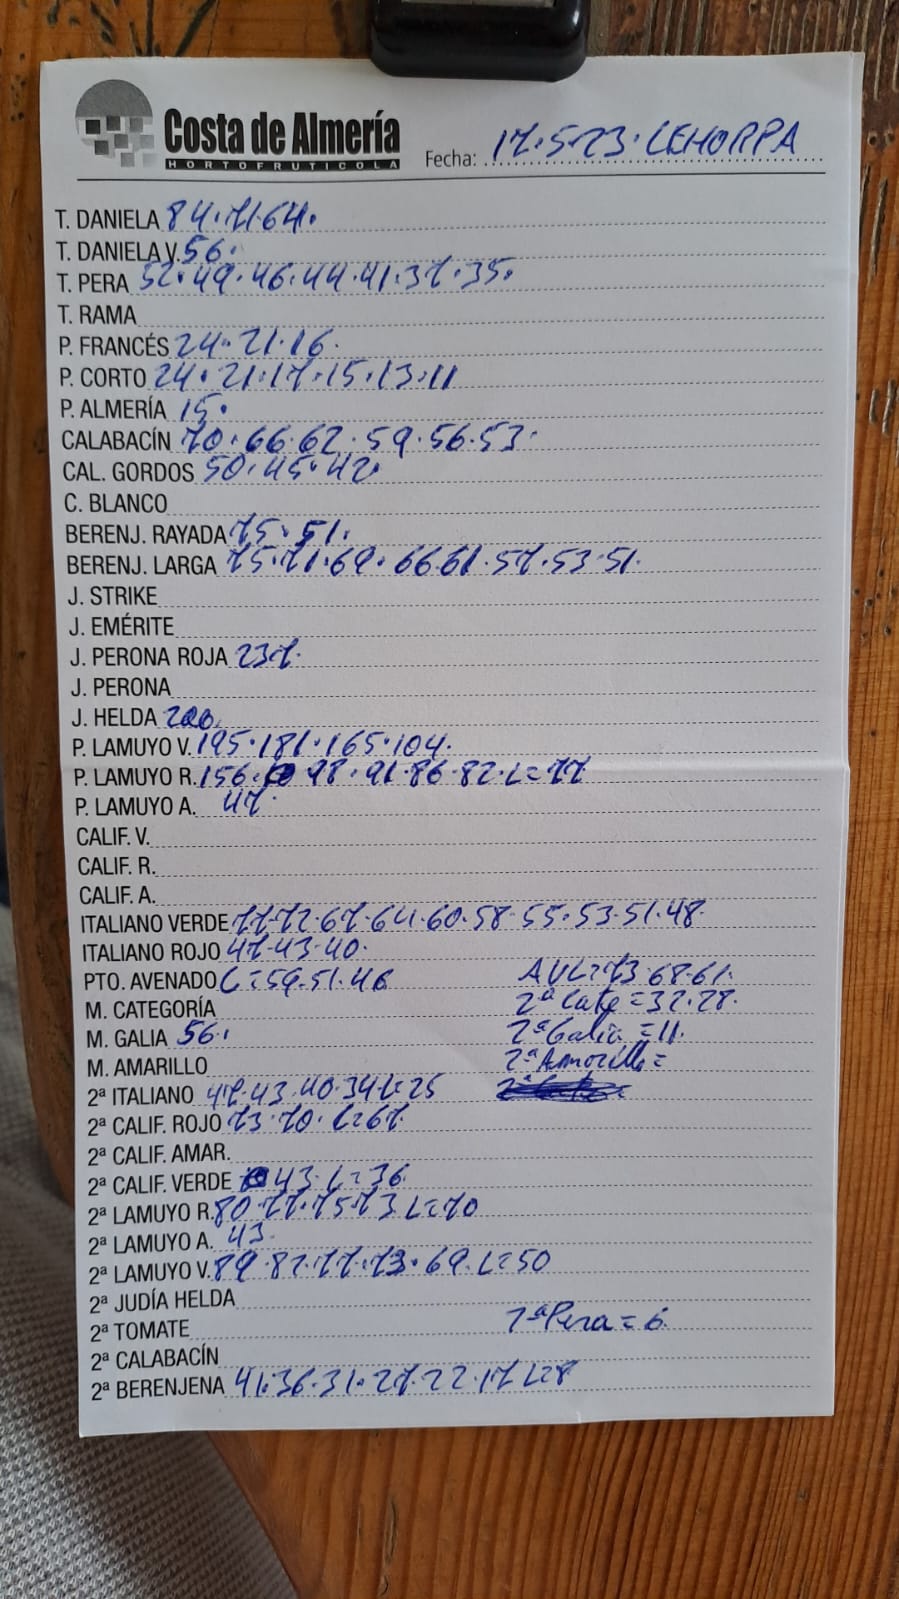 Costa de Almería
HORTOFRUTICOLA
Fecha: 17.5.23. LEHORPA
T. DANIELA 84.71.64.
T. DANELA V. 56.
T. PERA 52.49.46.44.41.37.35.
T. RAMA
P. FRANCÉS 24.21.16.
P. CORTO 24.21.17.15.13.11
P. ALMERÍA 15.
CALABACÍN 70.66.62.59.56.53.
CAL. GORDOS 50.45.42.
C. BLANCO
BERENJ. RAYADA 75.51.
BERENJ. LARGA 75.71.69.66.61.57.53.51.
J. STRIKE
J. EMÉRITE
J. PERONA ROJA 237.
J. PERONA
J. HELDA
P. LAMUYO V. 195.181.165.104.
P. LAMUYO R. 156. 98.91.86.82.L=77
P. LAMUYO A. 47.
CALIF. V.
CALIF. R.
CALIF. A.
ITALIANO VERDE 77.72.67.64.60.58.55.53.51.48.
ITALIANO ROJO 47.43.40.
PTO. AVENADO L=59.51.46 AVL=73 68.61.
M. CATEGORÍA 2ª Cate=32.28.
M. GALIA 56. 2ª Galia=11.
M. AMARILLO 2ª Amarillo=
2ª ITALIANO 47.43.40.34 L=25
2ª CALIF. ROJO 73.70.L=67
2ª CALIF. AMAR.
2ª CALIF. VERDE 43.L=36
2ª LAMUYO R. 80.77.75.73 L=70
2ª LAMUYO A. 43.
2ª LAMUYO V. 89.82.77.73.69.L=50
2ª JUDÍA HELDA
2ª TOMATE 2ª Pera=6.
2ª CALABACÍN
2ª BERENJENA 41.36.31.27.22.17 L=8